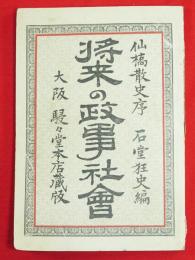 仙橋散史序
石堂狂史編
将来の政事社會
大阪 駸々堂本店藏版